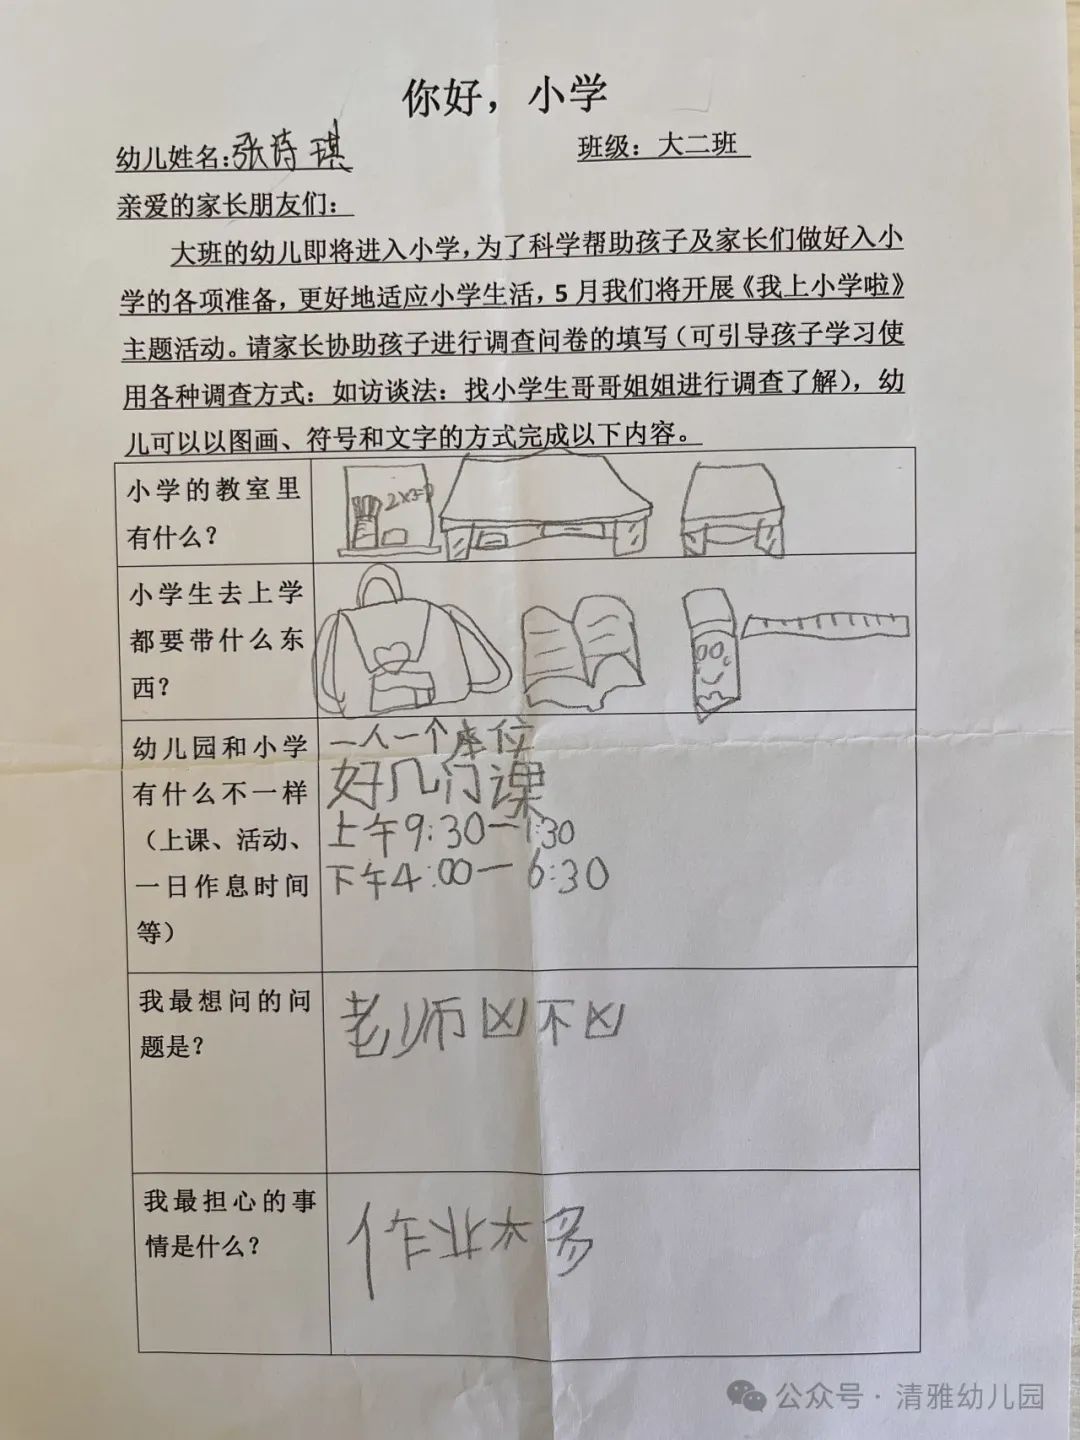 你好，小学
幼儿姓名:张诗琪 班级：大二班
亲爱的家长朋友们：
大班的幼儿即将进入小学，为了科学帮助孩子及家长们做好入小
学的各项准备，更好地适应小学生活，5月我们将开展《我上小学啦》
主题活动。请家长协助孩子进行调查问卷的填写（可引导孩子学习使
用各种调查方式：如访谈法：找小学生哥哥姐姐进行调查了解），幼
儿可以以图画、符号和文字的方式完成以下内容。
小学的教室里
有什么？
小学生去上学
都要带什么东
西？
幼儿园和小学
有什么不一样
（上课、活动、
一日作息时间
等）
一人一个座位
好几门课
上午9:30一1:30
下午4:00一6:30
我最想问的问
题是？
老师凶不凶
我最担心的事
情是什么？
作业太多
公众号·清雅幼儿园